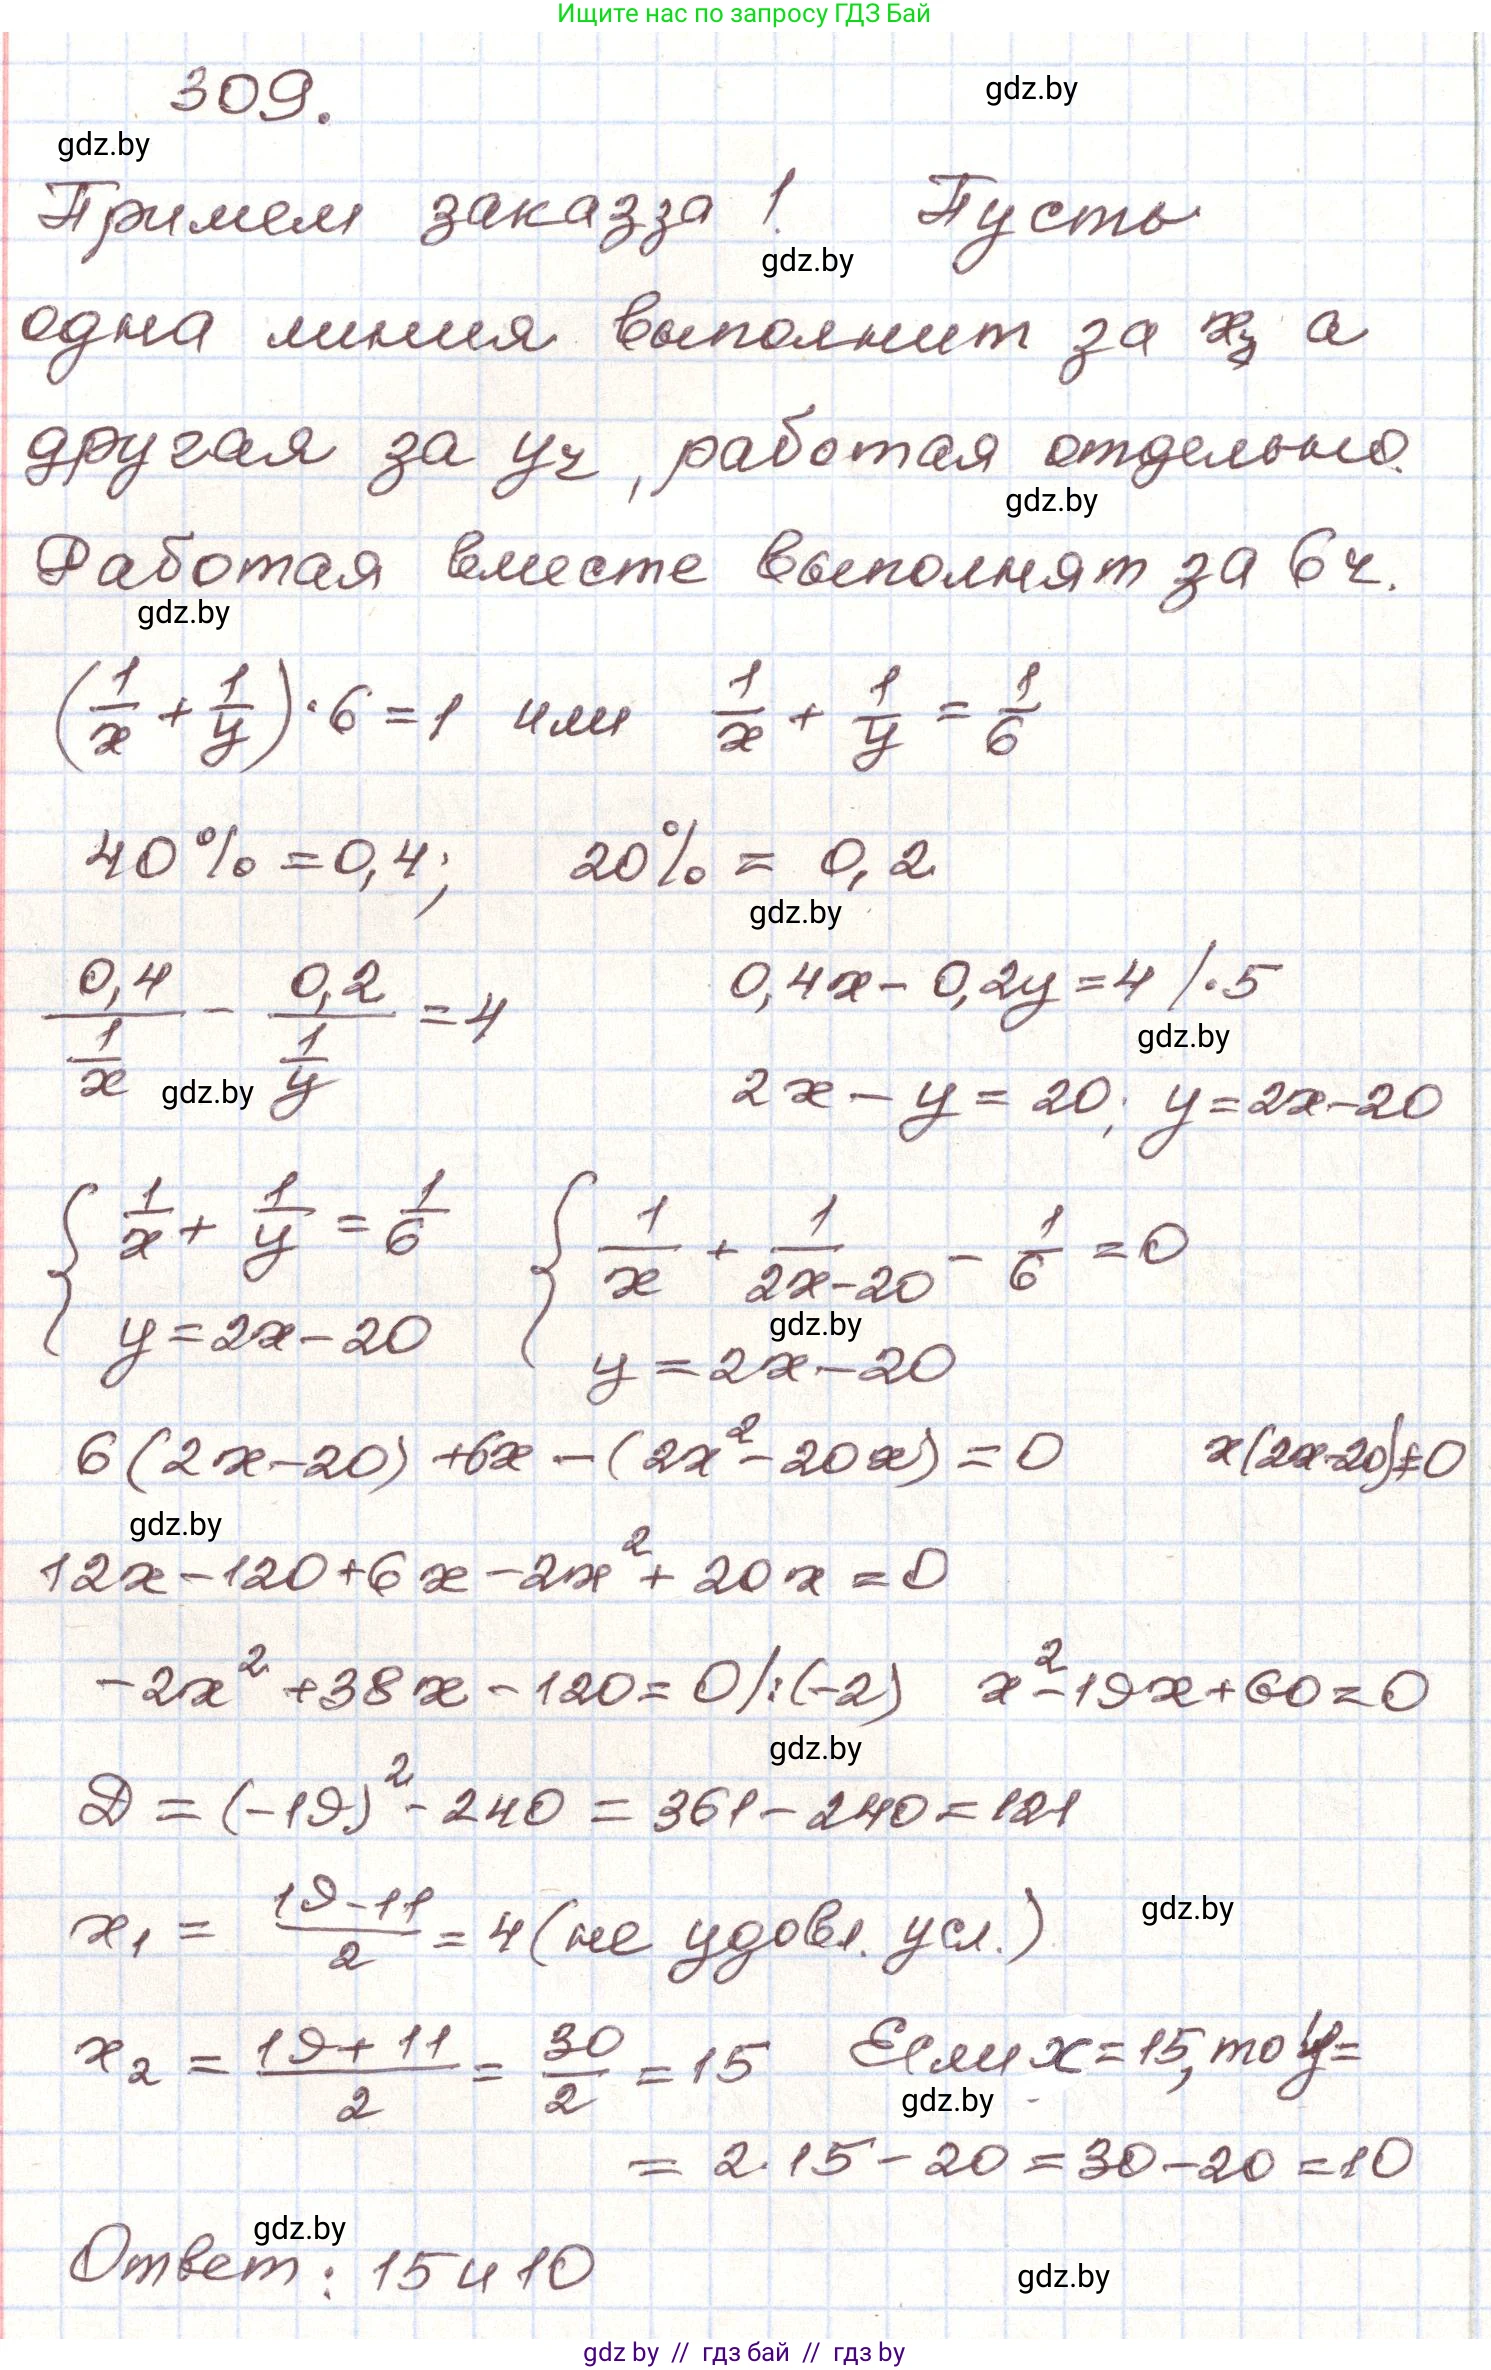 Ищите нас по запросу ГДЗ Бай
309.
gdz.by
gdz.by
Примем заказ за 1. Пусть
gdz.by
одна линия выполнит за xч, а
другая за yч, работая отдельно.
gdz.by
Работая вместе выполнят за 6ч.
gdz.by
(1/x + 1/y)·6=1 или 1/x + 1/y = 1/6
40%=0,4; 20% = 0,2
gdz.by
0,4/(1/x) - 0,2/(1/y) =4 0,4x-0,2y=4 /·5
gdz.by
gdz.by
2x-y=20; y=2x-20
{1/x + 1/y = 1/6 {1/x + 1/(2x-20) - 1/6 =0
gdz.by
y=2x-20 y=2x-20
6(2x-20)+6x-(2x²-20x)=0 x(2x-20)≠0
gdz.by
12x-120+6x-2x²+20x=0
-2x²+38x-120=0/:(-2) x²-19x+60=0
gdz.by
D=(-19)²-240=361-240=121
x₁ = (19-11)/2 = 4 (не удовл. усл.)
gdz.by
x₂ = (19+11)/2 = 30/2 = 15 Если x=15, то y=
gdz.by
= 2·15-20=30-20=10
gdz.by
Ответ: 15 и 10
gdz.by
gdz.by // гдз бай // гдз by